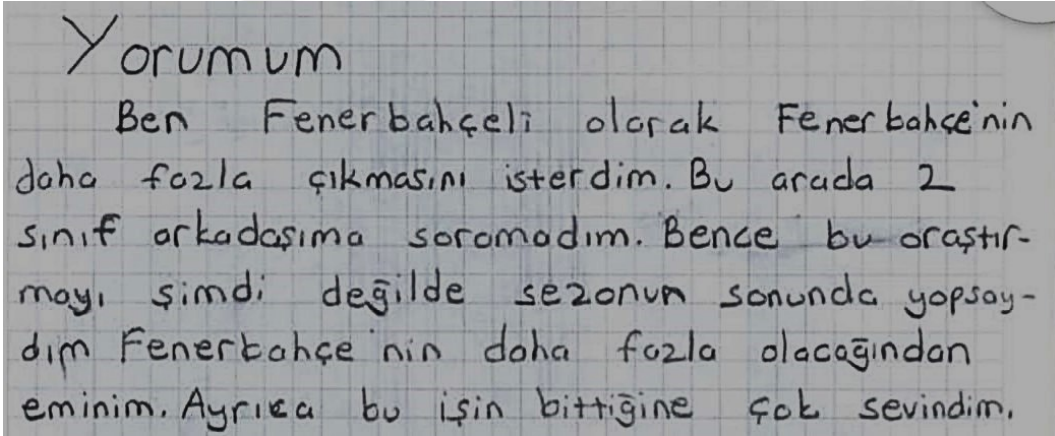 Yorumum
Ben Fenerbahçeli olarak Fenerbahçe'nin
daha fazla çıkmasını isterdim. Bu arada 2
sınıf arkadaşıma soramadım. Bence bu araştır-
mayı şimdi değilde sezonun sonunda yapsay-
dım Fenerbahçe'nin daha fazla olacağından
eminim. Ayrıca bu işin bittiğine çok sevindim.